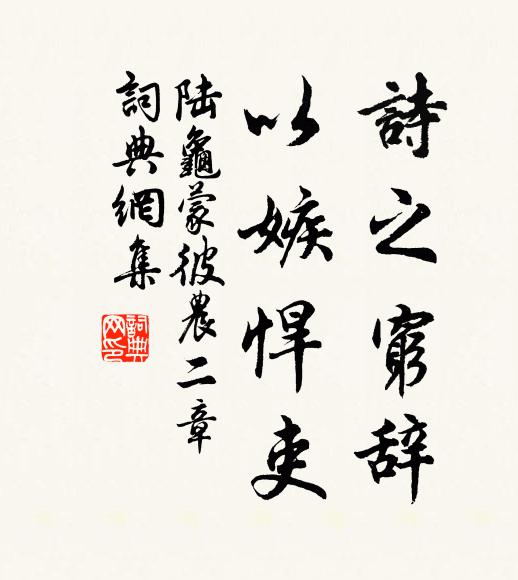 詩之窮辞
以嫉悍吏
陸龜蒙彼農二章
詞典網集
詞典网印